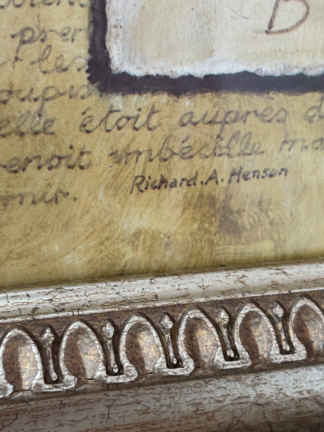 B
pren
les
oupis
elle étoit auprès d
renoit imbécille ma
enir.
Richard.A.Henson